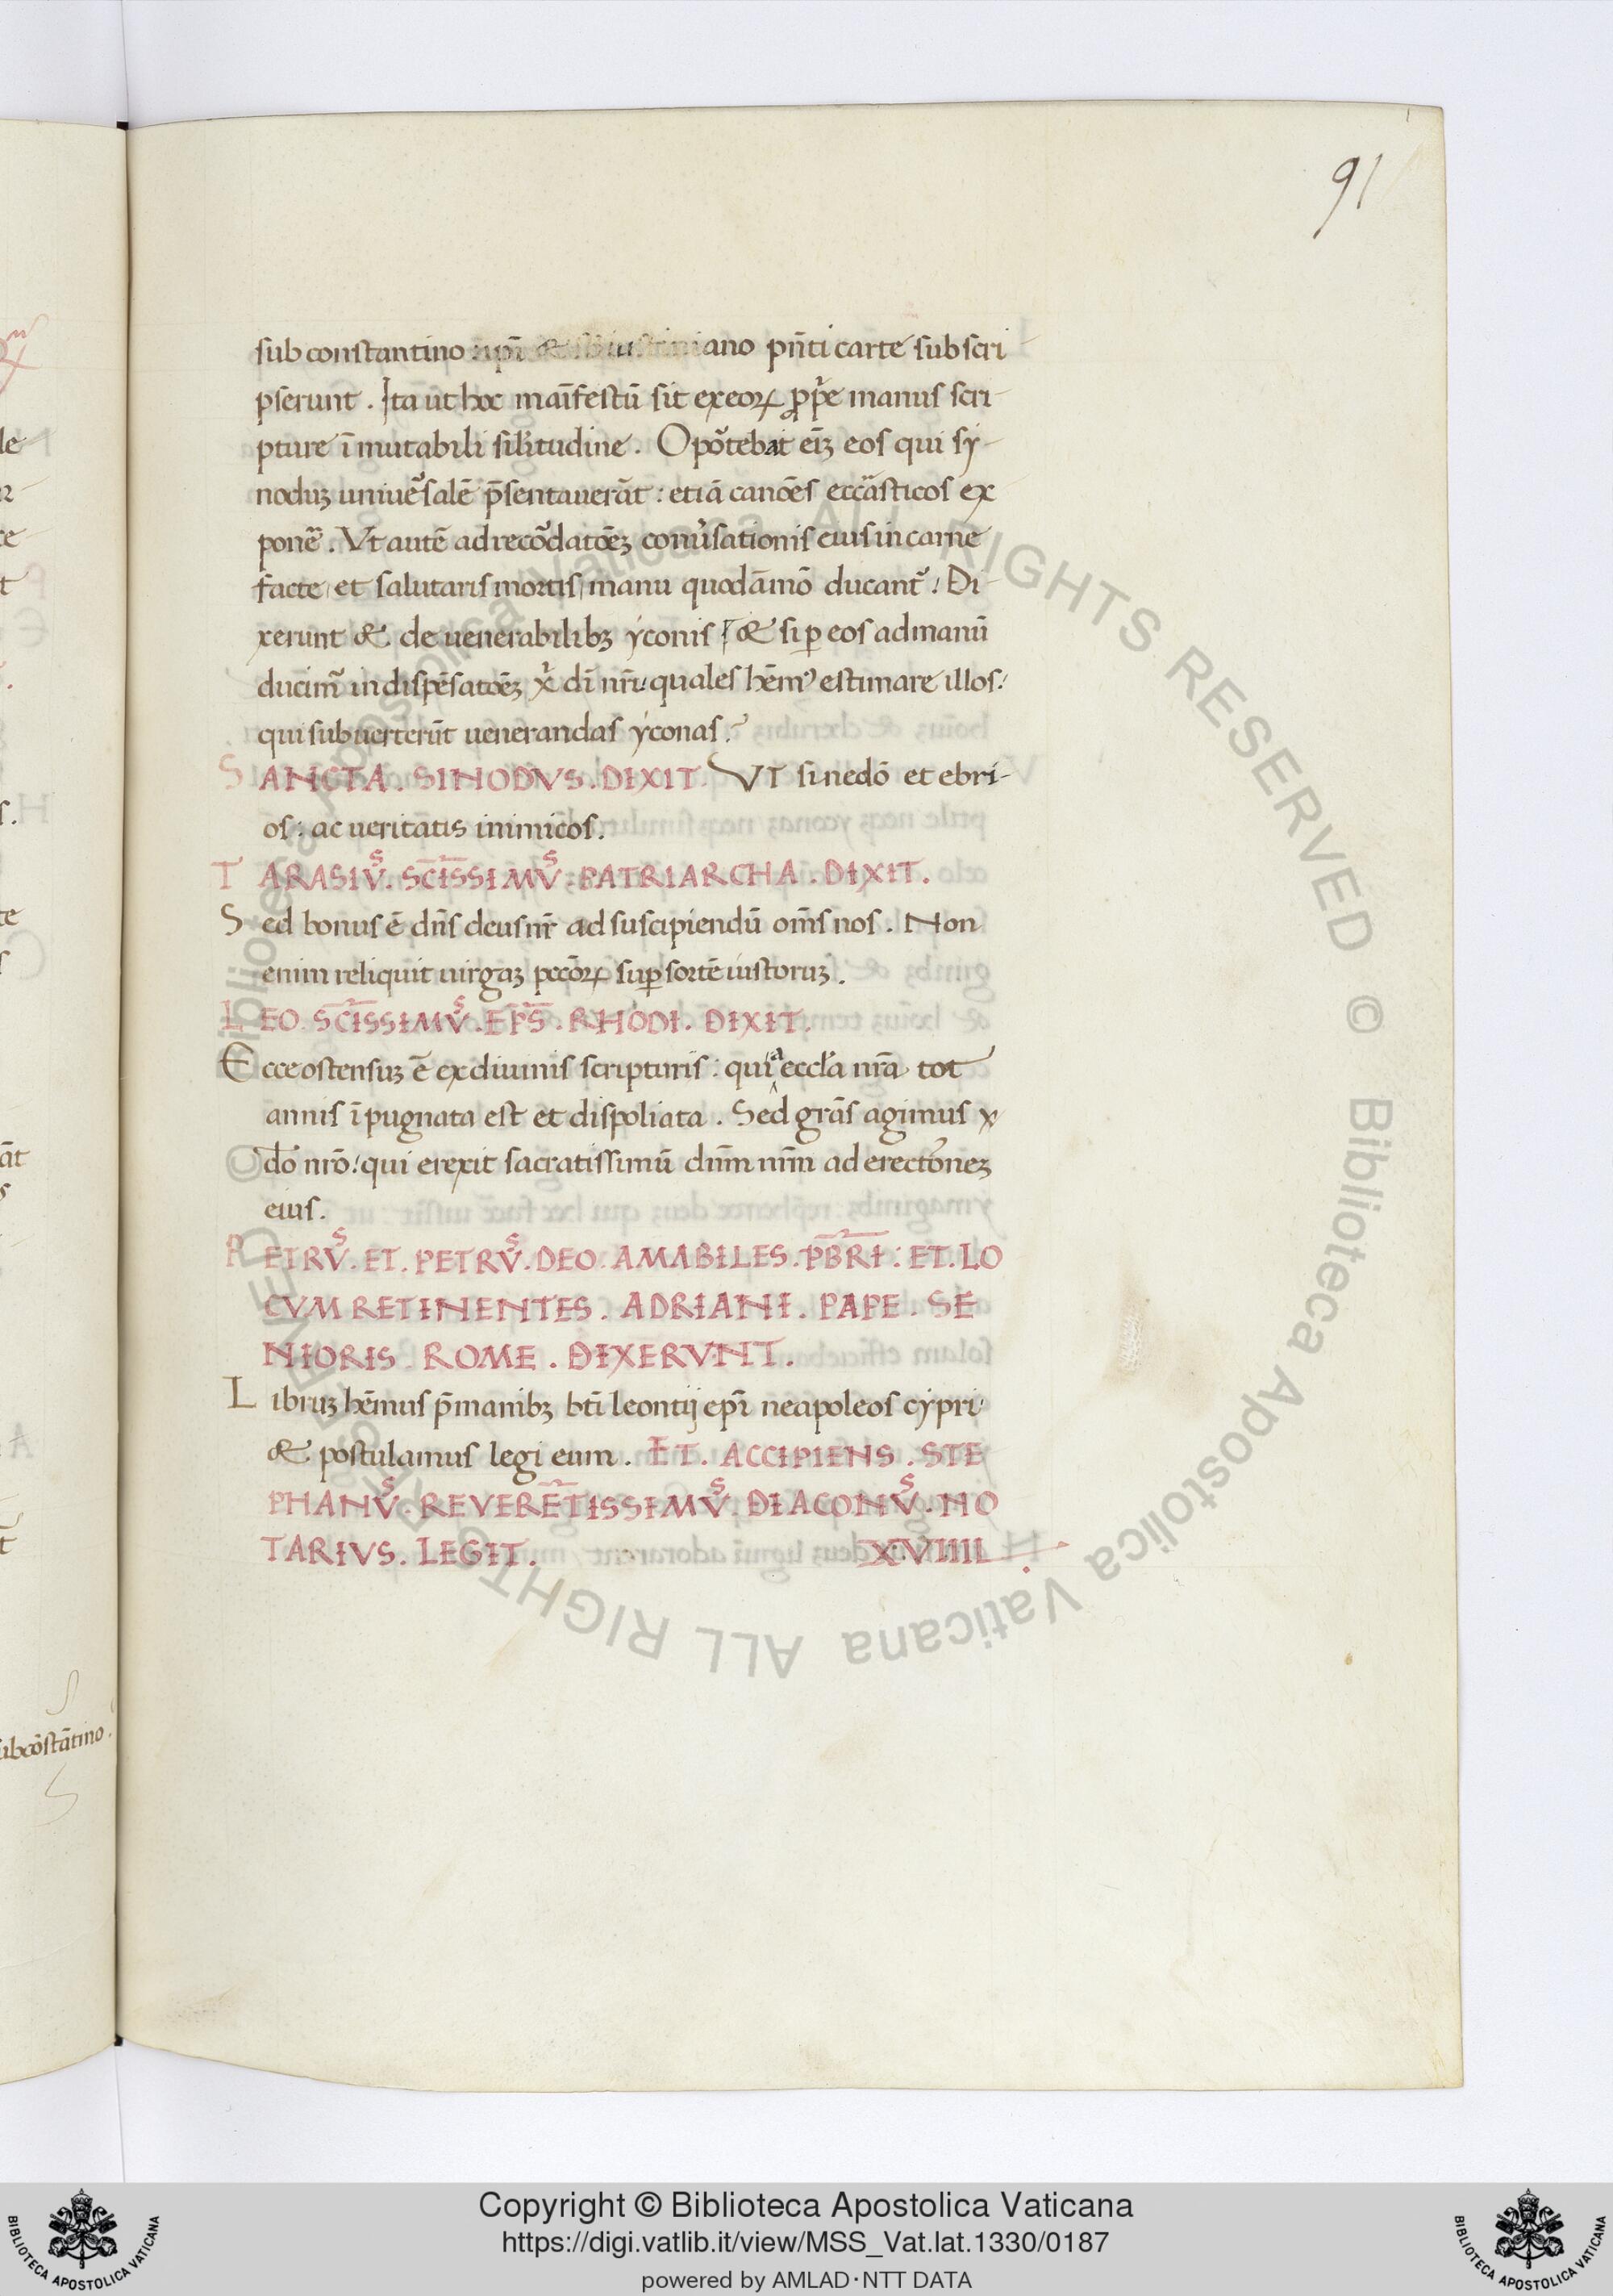 91
sub constantino ... ano pn̄ti carte subscri
pserunt . Ita ut hoc manīfestū sit ex eoꝝ ꝓpꝛe manus scri-
pture ī mutabili sil̄itudine . Opo᷑tebat eīꝫ eos qui sy-
noduꝫ uniue᷑salē p̄sentauerāt : etiā canōes eccāsticos ex
pone᷑ . Vt autē ad reco᷑datōeꝫ conu᷑sationis eius in carne
facte / et salutaris mortis / manu quodāmō ducant᷑ : Di-
xerunt & de uenerabilibꝫ ẏconis / & si ꝑ eos ad manū
ducim᷑ in dispēsatōeꝫ xp̄i dī nr̄i : quales hēmꝰ estimare illos :
qui subuerterūt uenerandas ẏconas ?
SANCTA . SINODVS . DIXIT . VT sinedō et ebri-
os : ac ueritatis inimicos .
TARASIVˢ . SC̄ISSIMVˢ . PATRIARCHA . DIXIT .
Sed bonus ē dn̄s deus nr̄ ad suscipiendū om̄s nos . Non
enim reliquit uirgaꝫ peccōꝝ suꝑ sortē iustoruꝫ .
LEO . SC̄ISSIMVˢ . EP̄S . RHODI . DIXIT .
Ecce ostensuꝫ ē ex diuinis scripturis : quiᵃ eccl̄a nr̄a tot
annis īpugnata est et dispoliata . Sed grās agimus x
do nr̄o : qui erexit sacratissimū dn̄m nr̄m ad erectōneꝫ
eius .
PETRVˢ . ET . PETRVˢ . DEO . AMABILES . PB̄RI : ET . LO
CVM RETINENTES . ADRIANI . PAPE . SE
NIORIS . ROME . DIXERVNT .
Libruꝫ hēmus p̄ manibꝫ bt̄i leontij ep̄i neapoleos cẏpri
& postulamus legi eum . ET . ACCIPIENS . STE
PHANVˢ . REVERĒTISSIMVˢ . DIACONVˢ . NO
TARIVS . LEGIT . XVIIII
ubcōstātino
© Biblioteca Apostolica Vaticana ALL RIGHTS RESERVED © Biblioteca Apostolica Vaticana ALL RIGHTS RESERVED
BIBLIOTECA APOSTOLICA VATICANA
Copyright © Biblioteca Apostolica Vaticana
https://digi.vatlib.it/view/MSS_Vat.lat.1330/0187
powered by AMLAD·NTT DATA
BIBLIOTECA APOSTOLICA VATICANA